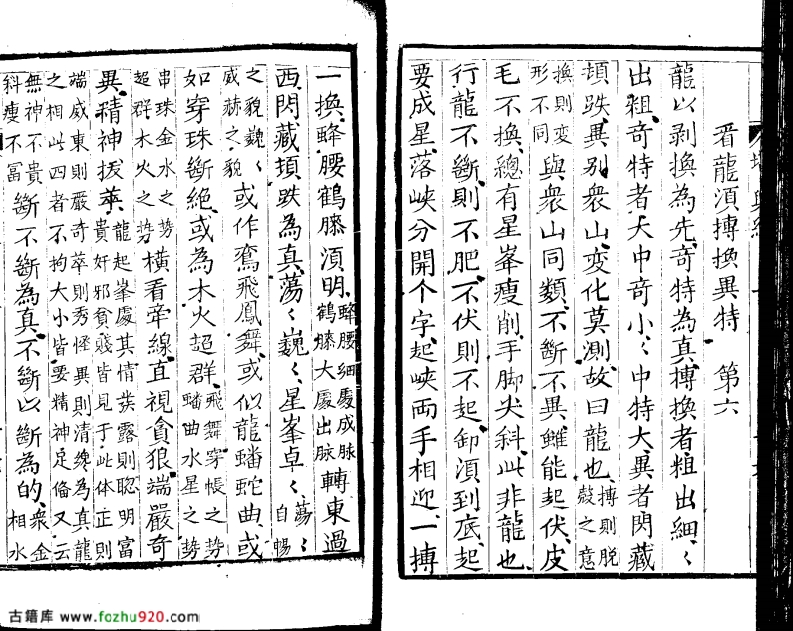 看龍須搏換異特 第六
龍以剥換為先奇特為真搏換者粗出細〻
出粗奇特者大中奇小〻中特大異者閃藏
頓跌異别衆山变化莫測故曰龍也搏則脱殼之意
換則变形不同與衆山同類不斷不異雖能起伏皮
毛不換緫有星峯瘦削手脚尖斜此非龍也
行龍不斷則不肥不伏則不起卸須到底起
要成星落峽分開个字起峽両手相迎一搏
一換蜂腰鶴膝須明蜂腰細處成脉鶴膝大處出脉轉東過
西閃藏頓跌為真蕩〻巍〻星峯卓〻蕩〻自暢
之貌巍〻威赫之貌或作鸞飛鳳舞或似龍蟠蛇曲或
如穿珠斷絶或為木火超群飛舞穿帳之勢蟠曲水星之勢
串珠金水之勢超群木火之勢横看牽線直視貪狼端嚴奇
異精神拔萃龍起峯處其情美露則聡明富貴奸邪貧賤皆見于此体正則
端威東則嚴奇萃則秀怪異則清緫為真龍之相此四者不拘大小皆要精神足俻又云
無神不貴斜瘦不冨斷不斷為真不斷以斷為的衆金相水
古籍库 www.fozhu920.com